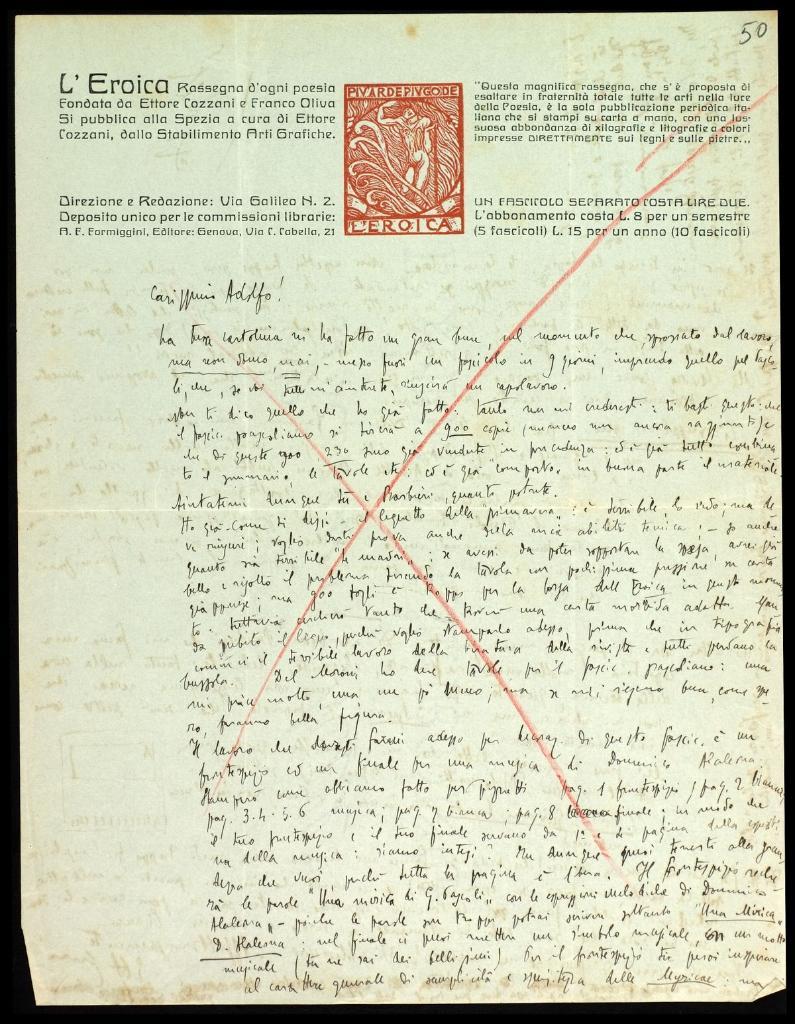 50
L'Eroica Rassegna d'ogni poesia
Fondata da Ettore Cozzani e Franco Oliva
Si pubblica alla Spezia a cura di Ettore
Cozzani, dallo Stabilimento Arti Grafiche.
Direzione e Redazione: Via Galileo N. 2.
Deposito unico per le commissioni librarie:
A. F. Formiggini, Editore: Genova, Via C. Cabella, 21
PIVARDEPIVGODE
L'EROICA
"Questa magnifica rassegna, che s'è proposta di
esaltare in fraternità totale tutte le arti nella luce
della Poesia, è la sola pubblicazione periodica ita-
liana che si stampi su carta a mano, con una lus-
suosa abbondanza di xilografie e litografie a colori
impresse DIRETTAMENTE sui legni e sulle pietre.,,
UN FASCICOLO SEPARATO COSTA LIRE DUE.
L'abbonamento costa L. 8 per un semestre
(5 fascicoli) L. 15 per un anno (10 fascicoli)
Carissimo Adolfo!
La tua cartolina mi ha fatto un gran bene, nel momento che, spossato dal lavoro,
ma non domo, mai, - messo fuori un fascicolo in 9 giorni, imprendo quello pel
li, che, se voi tutti mi aiutate, riuscirà un capolavoro.
Non ti dico quello che ho già fatto: tanto non mi crederesti: ti basti questo: che
il fascic. pascoliano si tirerà a 900 copie (numero non ancora raggiunto) e
che di queste 900 230 sono già vendute in precedenza: ed è già tutto combina-
to il sommario, le tavole etc: ed è già composto in buona parte il materiale
Aiutatemi dunque tu e Barbieri, quanto potete.
Ho già - come ti dissi - il legnetto della "primavera": è terribile, lo vedo; ma
; voglio darti prova anche della mia abilità tecnica! - So anche
quanto sia terribile "la madre"; se avessi da poter sopportare la spesa, avrei già
bello e risolto il problema tirando la tavola con pochissima pressione su carta
; ma 900 fogli è troppo per la borsa dell'Eroica in questo momen-
to. Tuttavia cercherò tanto che troverò una carta morbida adatta. Man-
da subito il legno, perché voglio stamparlo adesso, prima che in tipografia
cominci il terribile lavoro della tiratura della rivista e tutti perdano la
bussola. Del Moroni ho due tavole per il fascic. pascoliano: una
mi piace molto, una un pò meno; ma se mi riescono bene, come spe-
ro, faranno bella figura.
Il lavoro che dovresti farmi adesso per di questo fascic. è un
frontespizio ed un finale per una musica di Domenico Alaleona.
Stamperò come abbiamo fatto per Pizzetti pag. 1 frontespizio, pag. 2 bianca,
pag. 3. 4. 5. 6 musica; pag. 7 bianca; pag. 8 finale; in modo che
il tuo frontespizio e il tuo finale servano da 1a e di pagina della
na della musica: siamo intesi? Tu dunque puoi tenerti alla gran-
dezza che vuoi perché tutta la pagina è libera. Il frontespizio reche-
rà le parole "Una musica di G. Pascoli" con le espressioni melodiche di Domenico
Alaleona" - poiché le parole son troppe potrai scrivere soltanto "Una Musica
D. Alaleona: nel finale ci puoi mettere un simbolo musicale, o un motto
musicale (tu ne sai dei bellissimi) Per il frontespizio tu puoi inspirare
al carattere generale di semplicità e delle Myricae: ma